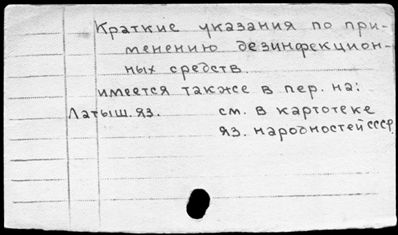 Краткие указания по при-
менению дезинфекцион-
ных средств.
имеется также в пер. на:
Латыш. яз. см. в картотеке
яз. народностей СССР.